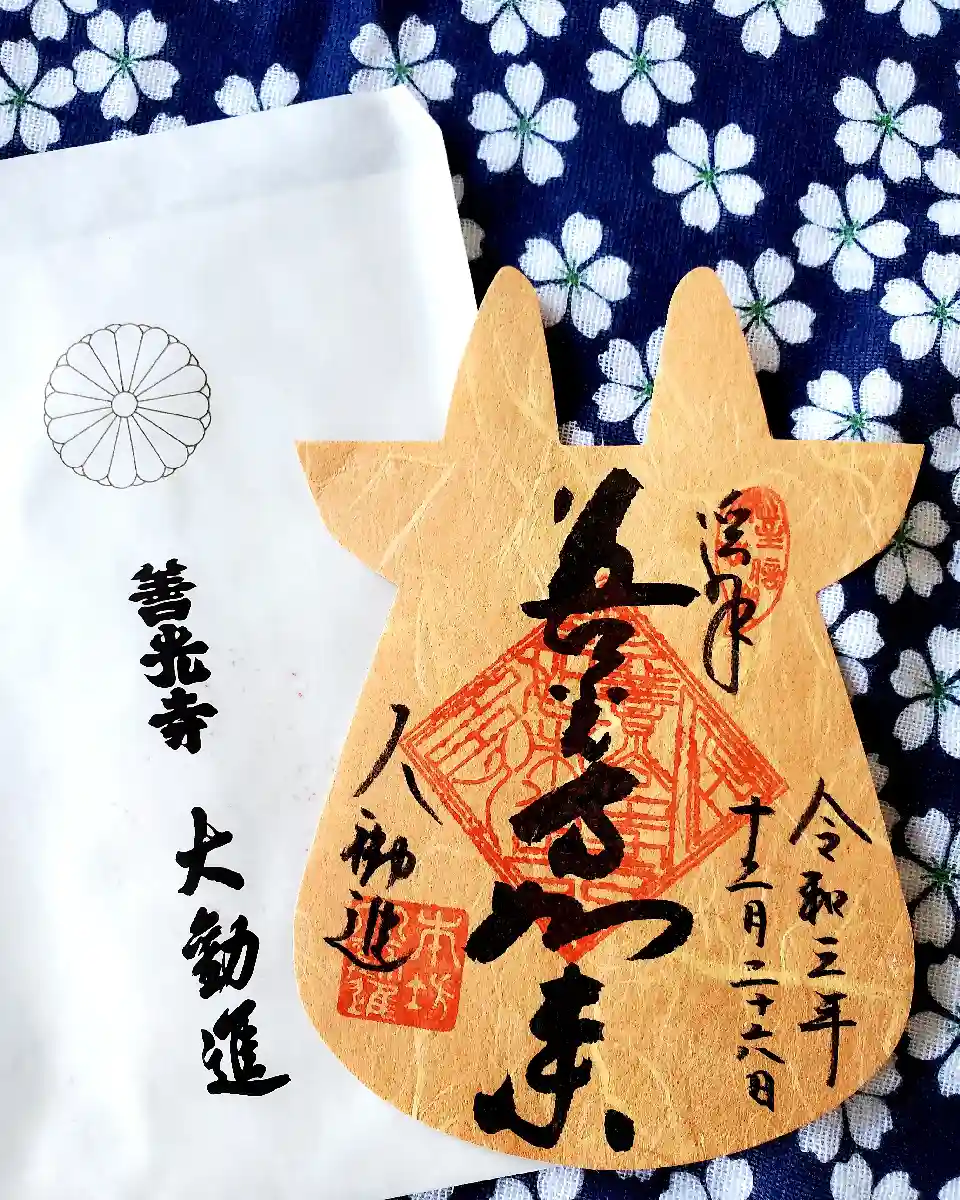 善光寺 大勧進
令和三年
十二月二十六日
善光寺如来
大勧進
本坊